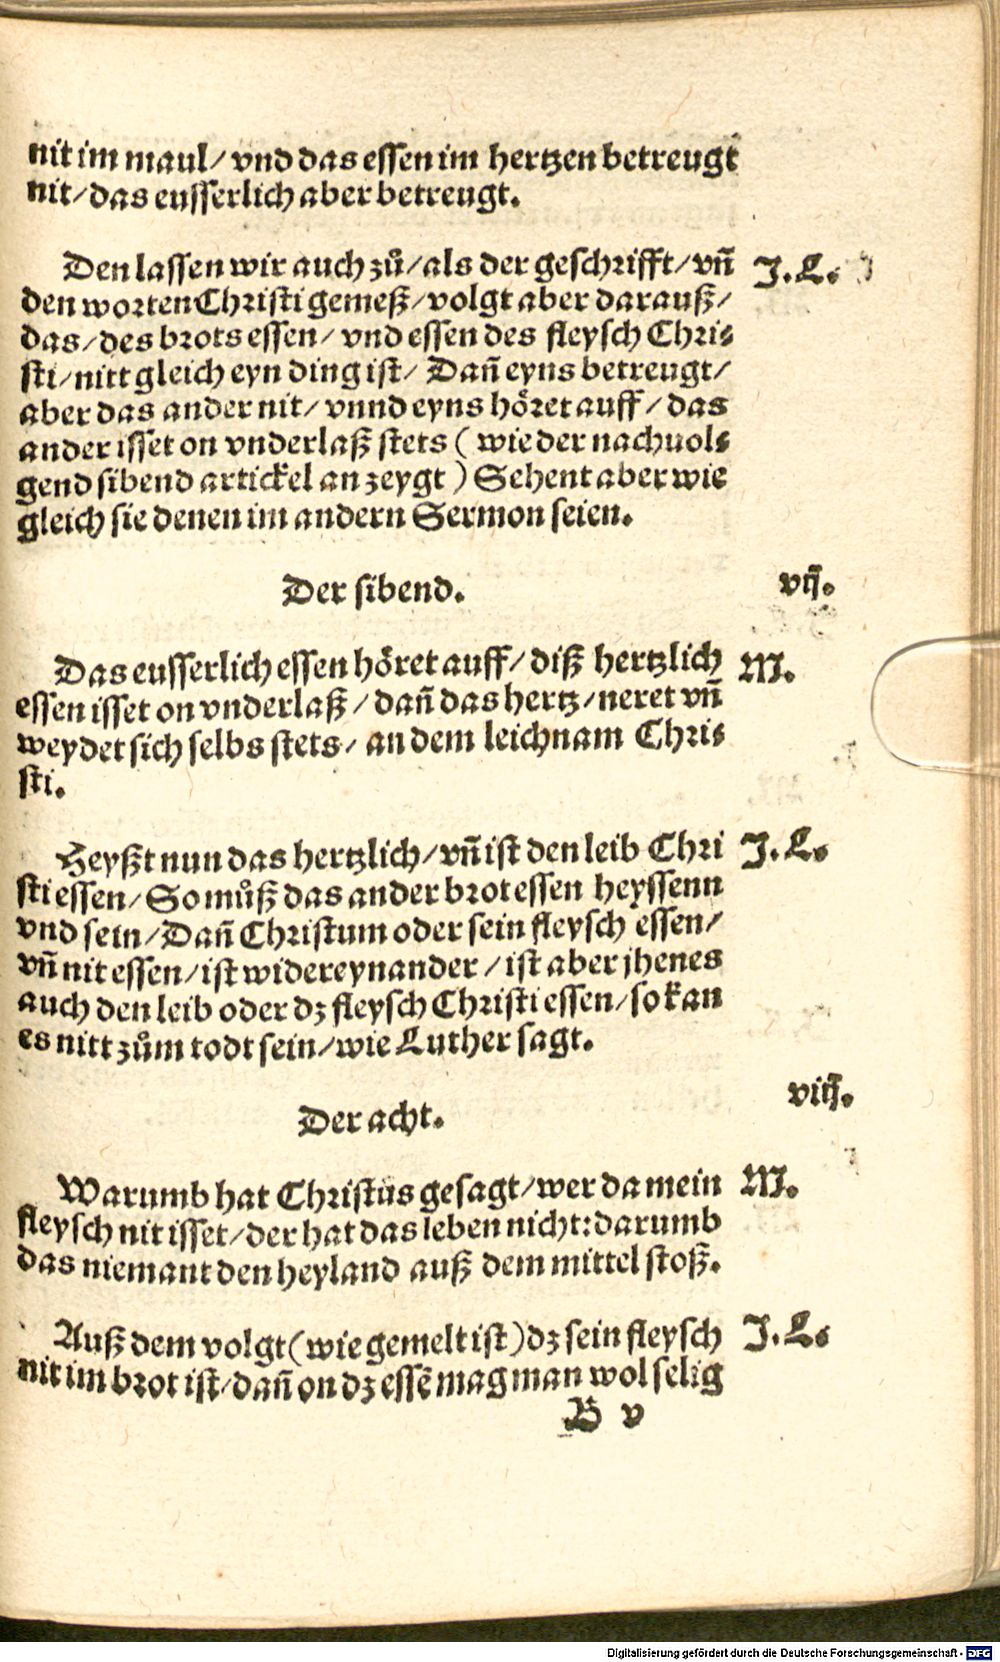 nit im maul/ vnd das essen im hertzen betreugt
nit/das eusserlich aber betreugt.
Den lassen wir auch zů/als der geschrifft/vñ J. L.
den worten Christi gemeß/volgt aber darauß/
das/des brots essen/ vnd essen des fleysch Chri-
sti/nitt gleich eyn ding ist/ Dañ eyns betreugt/
aber das ander nit/ vnnd eyns höret auff/das
ander isset on vnderlaß stets ( wie der nachuol-
gend sibend artickel an zeygt ) Sehent aber wie
gleich sie denen im andern Sermon seien.
Der sibend. vij.
Das eusserlich essen höret auff/ diß hertzlich M.
essen isset on vnderlaß/ dañ das hertz/neret vñ
weydet sich selbs stets/ an dem leichnam Chri-
sti.
Heyßt nun das hertzlich/vñ ist den leib Chri J. L.
sti essen/So můß das ander brot essen heyssenn
vnd sein/Dañ Christum oder sein fleysch essen/
vñ nit essen/ist wider eynander/ist aber jhenes
auch den leib oder dz fleysch Christi essen/so kan
es nitt zům todt sein/wie Luther sagt.
Der acht. viij.
Warumb hat Christus gesagt/wer da mein M.
fleysch nit isset/der hat das leben nicht:darumb
das niemant den heyland auß dem mittel stoß.
Auß dem volgt(wie gemelt ist)dz sein fleysch J. L.
nit im brot ist/dañ on dz essē mag man wol selig
B v
Digitalisierung gefördert durch die Deutsche Forschungsgemeinschaft - DFG